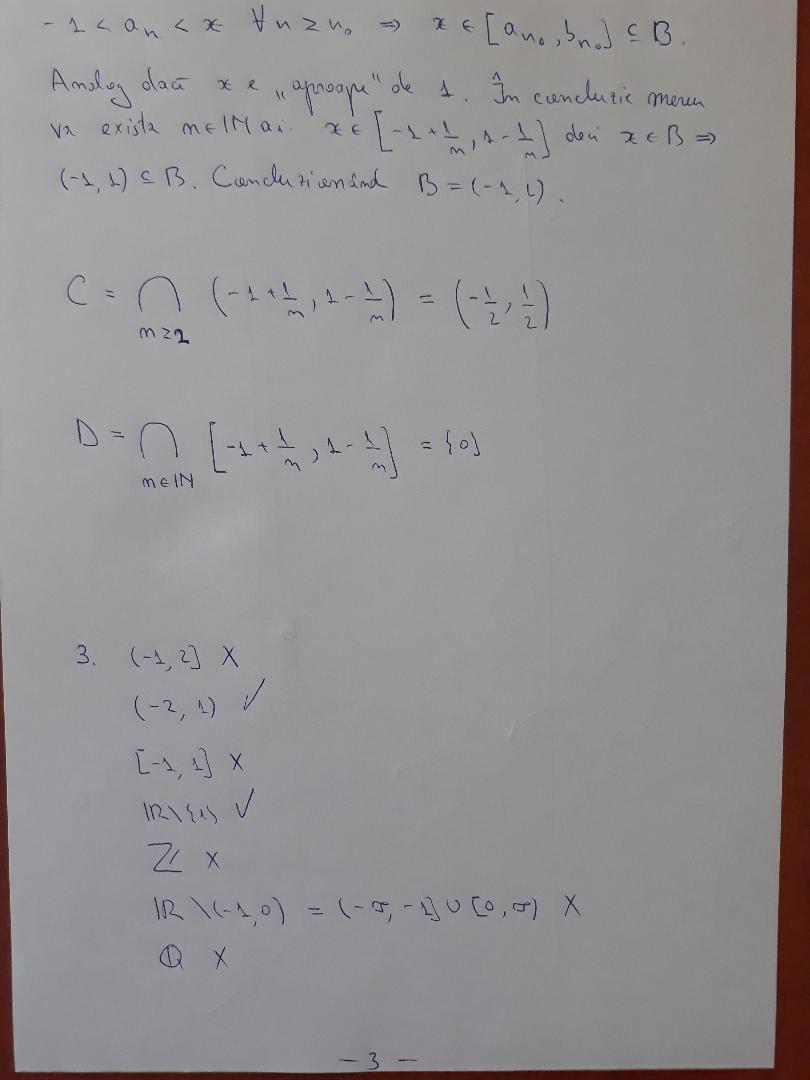 -1 < aₙ < x ∀ n ≥ n₀ ⇒ x ∈ [aₙ₀, bₙ₀] ⊆ B.
Analog dacă x e „aproape" de 1. În concluzie mereu
va exista n ∈ ℕ a.i. x ∈ [-1+1/n, 1-1/n] deci x ∈ B ⇒
(-1, 1) ⊆ B. Concluzionând B = (-1, 1).
C = ⋂ n≥2 (-1+1/n, 1-1/n) = (-1/2, 1/2)
D = ⋂ n∈ℕ [-1+1/n, 1-1/n] = {0}
3. (-1, 2] X
(-2, 1) ✓
[-1, 1] X
ℝ\{1} ✓
ℤ X
ℝ\(-1, 0) = (-∞, -1] ∪ [0, ∞) X
ℚ X
- 3 -